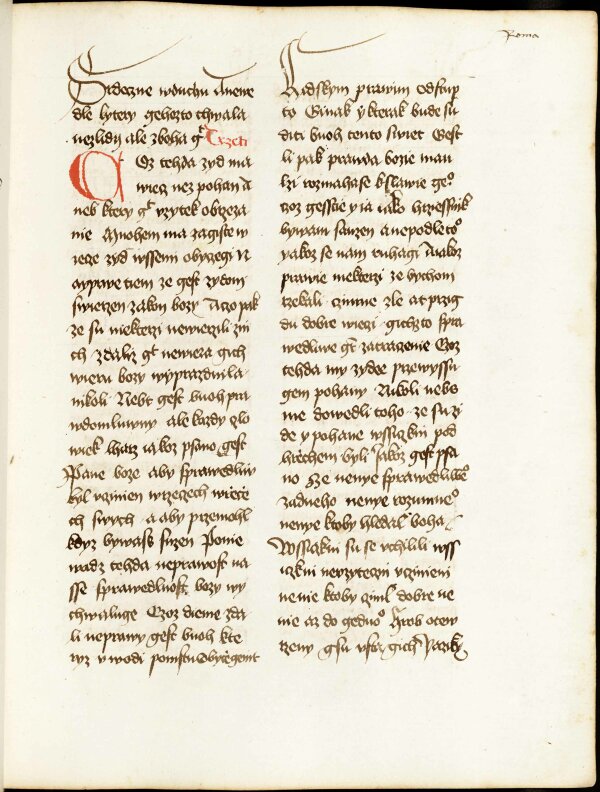 Roma
Srdeczne wduchu Anene
dle lytery gehozto chwala
nezlidij ale zboha gt Trzeti
Coz tehda zyd ma
wiecz nez pohan A
neb ktery gt vzytek obrzeza
nie Mnohem ma zagiste w
iecze zyd wssemi obyczegi N
ayprwe tiem ze gest zydom
swierzen zakon bozy Aczo pak
ze su niekterzi newierzili zni
ch zdaliz gt newiera gich
wieru bozy wyprazdnila
nikoli Nebt gest buoh pra
wdomluwny ale kazdy czlo
wiek lharz jakoz psano gest
Pane boze aby sprawedliw
byl vcinien wrzeczech wiecie
ch swych a aby przemohl
kdyz bywass suzen Ponie
wadz tehda neprawost na
sse sprawedlnost bozy wy
chwaluge Czoz dieme zda
li neprawy gest buoh kte
ryz vwodi pomstu Obyczegem
lidskym prawim Odstup
to Ginak y kterak bude su
diti buoh tento swiet Gest
li pak prawda bozie mau
lzi rozmahase kslawie geo
czoz gesscie y ia iako hrzessnik
bywam suzen a nepodleto
yakoz se nam ruhagi A iakoz
prawie niekterzi ze bychom
rzekali czinme zle at przig
du dobre wieczi gichzto spra
wedliwe gt zatraczenie Czoz
tehda my zydee przewyssu
gem pohany Nikoli nebo
sme dowedli toho ze su zi
de y pohane wssiczkni pod
hrziechem byli Jakoz gest psa
no Ze nenye sprawedliweo
zadneho nenye rozumneo
nenye ktoby hledal boha
Wssiczkni su se vchilili wss
iczkni nevzyteczni vczinieni
nenie ktoby czinil dobre ne
nie az do gednoo Hrob otew
rzeny gsu vsta gich Jazik